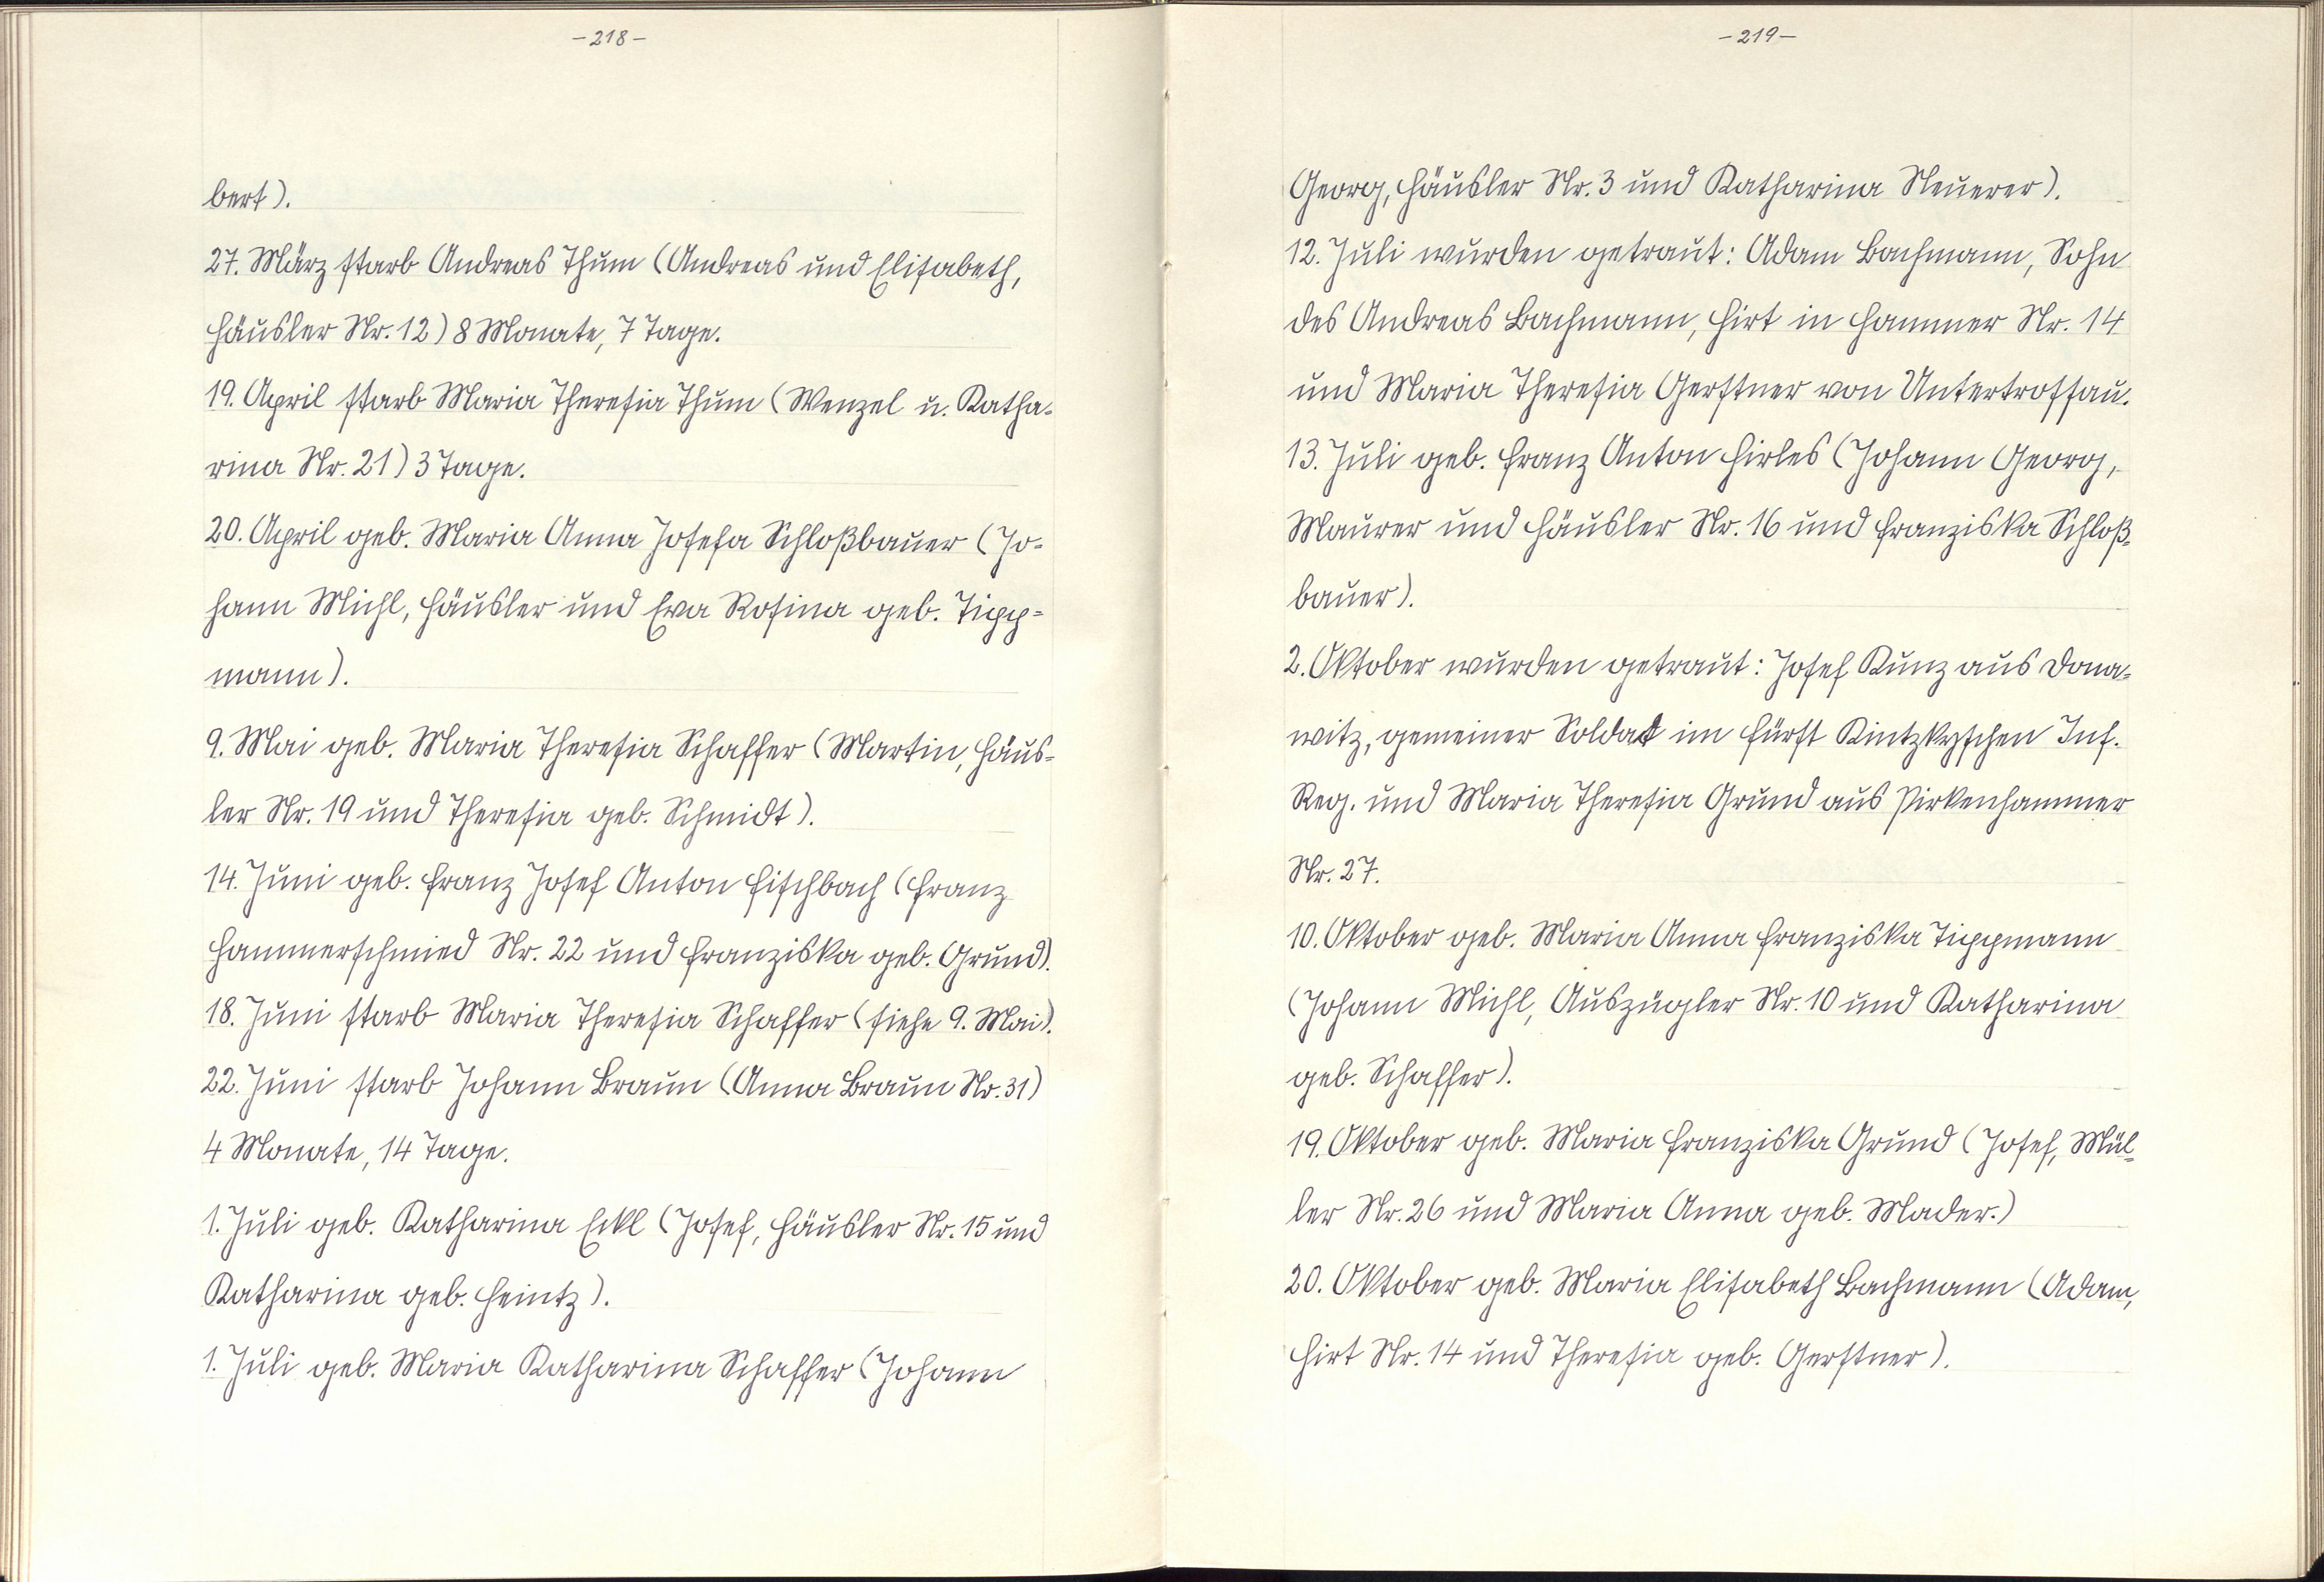 -218-
bert).
27. März starb Andreas Thum (Andreas und Elisabeth,
Häusler Nr. 12) 8 Monate, 7 Tage.
19. April starb Maria Theresia Thum (Wenzel u. Katha-
rina Nr. 21) 3 Tage.
20. April geb. Maria Anna Josefa Schloßbauer (Jo-
hann Michl, Häusler und Eva Rosina geb. Tipp-
mann).
9. Mai geb. Maria Theresia Schaffer (Martin, Häus-
ler Nr. 19 und Theresia geb. Schmidt).
14. Juni geb. Franz Josef Anton Fischbach (Franz
Hammerschmied Nr. 22 und Franziska geb. Grund).
18. Juni starb Maria Theresia Schaffer (siehe 9. Mai).
22. Juni starb Johann Braun (Anna Braun Nr. 31)
4 Monate, 14 Tage.
1. Juli geb. Katharina Eckl (Josef, Häusler Nr. 15 und
Katharina geb. Heintz).
1. Juli geb. Maria Katharina Schaffer (Johann
-219-
Georg, Häusler Nr. 3 und Katharina Neuerer).
12. Juli wurden getraut: Adam Bachmann, Sohn
des Andreas Bachmann, Hirt in Hammer Nr. 14
und Maria Theresia Gerstner von Untertrossau.
13. Juli geb. Franz Anton Hirles (Johann Georg,
Maurer und Häusler Nr. 16 und Franziska Schloß-
bauer).
2. Oktober wurden getraut: Josef Kunz aus Dona-
witz, gemeiner Soldat im Fürst Kintzkyschen Inf.
Reg. und Maria Theresia Grund aus Pirkenhammer
Nr. 27.
10. Oktober geb. Maria Anna Franziska Tippmann
(Johann Michl, Auszügler Nr. 10 und Katharina
geb. Schaffer).
19. Oktober geb. Maria Franziska Grund (Josef, Mül-
ler Nr. 26 und Maria Anna geb. Mader.)
20. Oktober geb. Maria Elisabeth Bachmann (Adam,
Hirt Nr. 14 und Theresia geb. Gerstner).